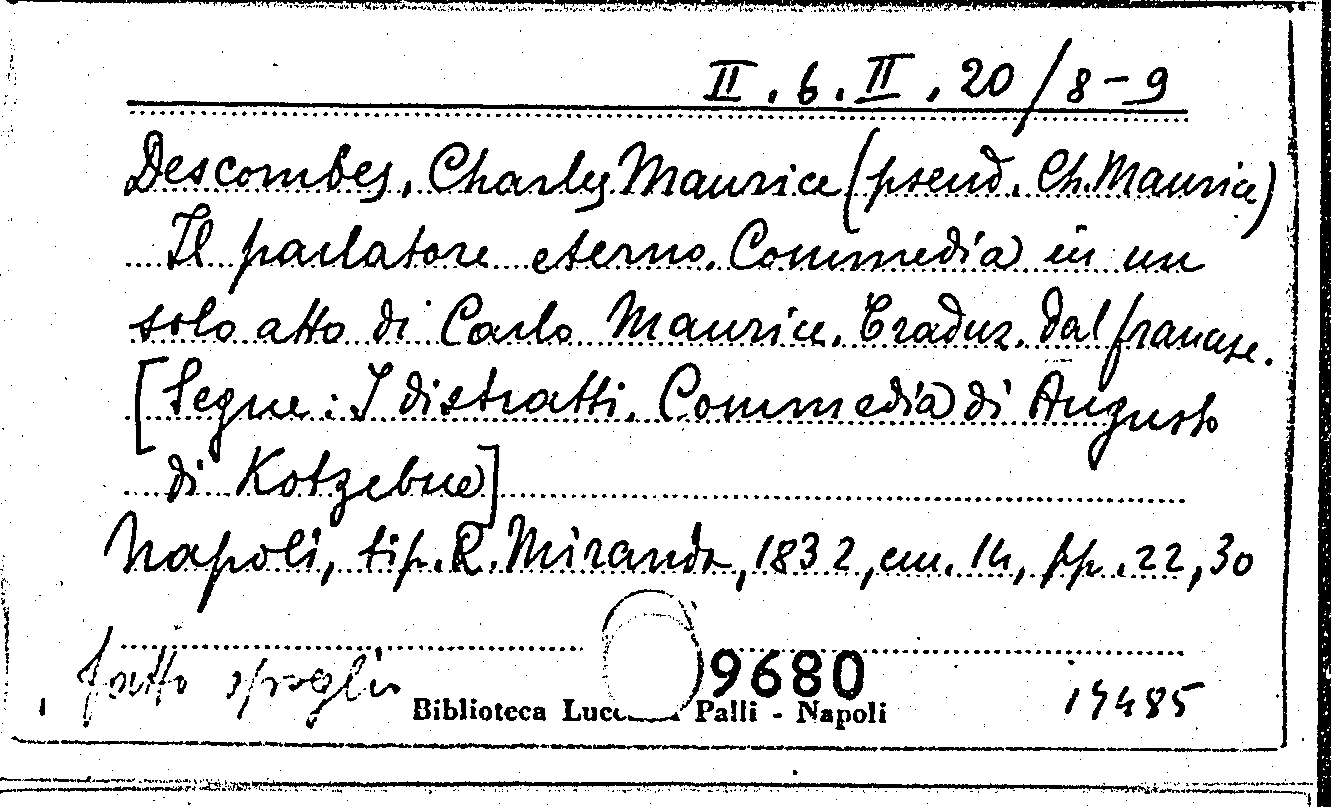 II.6.II.20/8-9
Descombes, Charles Maurice (pseud. Ch. Maurice)
Il parlatore eterno. Commedia in un
solo atto di Carlo Maurice. Traduz. dal francese.
[Segue: I distratti. Commedia di Augusto
di Kotzebue]
Napoli, tip. R. Miranda, 1832, cm. 14, pp. 22, 30
fatto spoglio
9680
Biblioteca Palli - Napoli